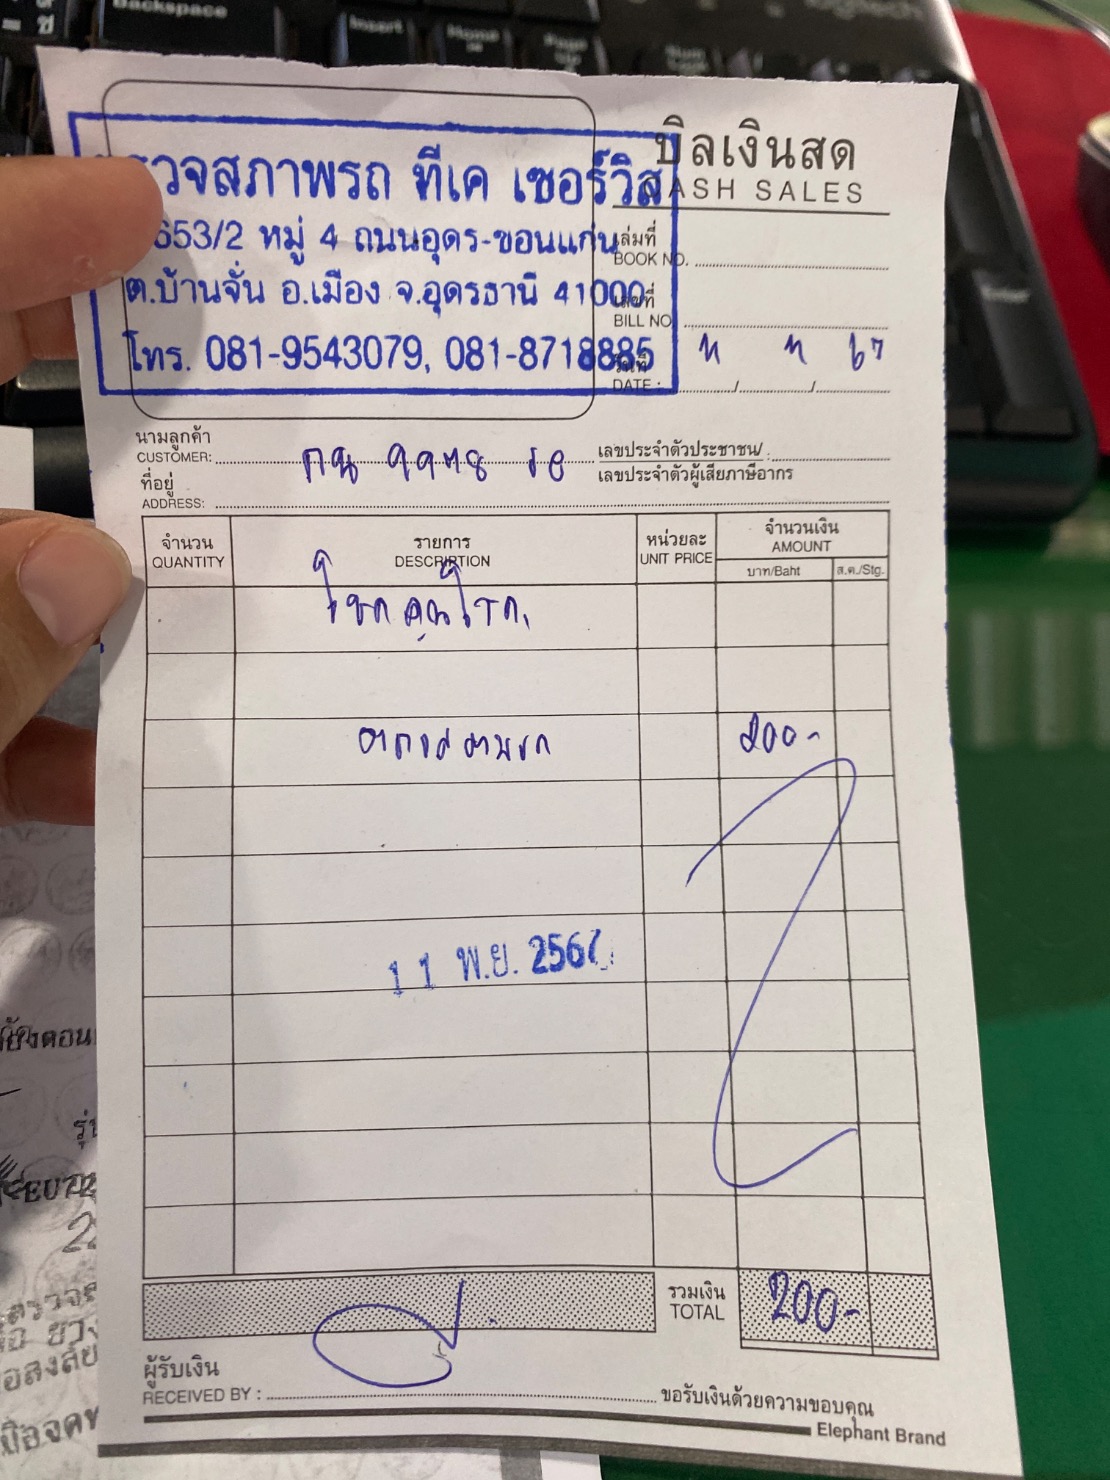 Backspace
Insert
Home
วจสภาพรถ ทีเค เซอร์วิส
653/2 หมู่ 4 ถนนอุดร-ขอนแก่น
ต.บ้านจั่น อ.เมือง จ.อุดรธานี 41000
โทร. 081-9543079, 081-8718885
บิลเงินสด
CASH SALES
เล่มที่
BOOK NO.
เลขที่
BILL NO
วันที่
DATE : 67
นามลูกค้า
CUSTOMER:
เลขประจำตัวประชาชน/
เลขประจำตัวผู้เสียภาษีอากร
ที่อยู่
ADDRESS:
จำนวน รายการ หน่วยละ จำนวนเงิน
QUANTITY DESCRIPTION UNIT PRICE AMOUNT
บาท/Baht ส.ต./Stg.
200-
11 พ.ย. 2567
รวมเงิน
TOTAL 200-
ผู้รับเงิน
RECEIVED BY :
ขอรับเงินด้วยความขอบคุณ
Elephant Brand